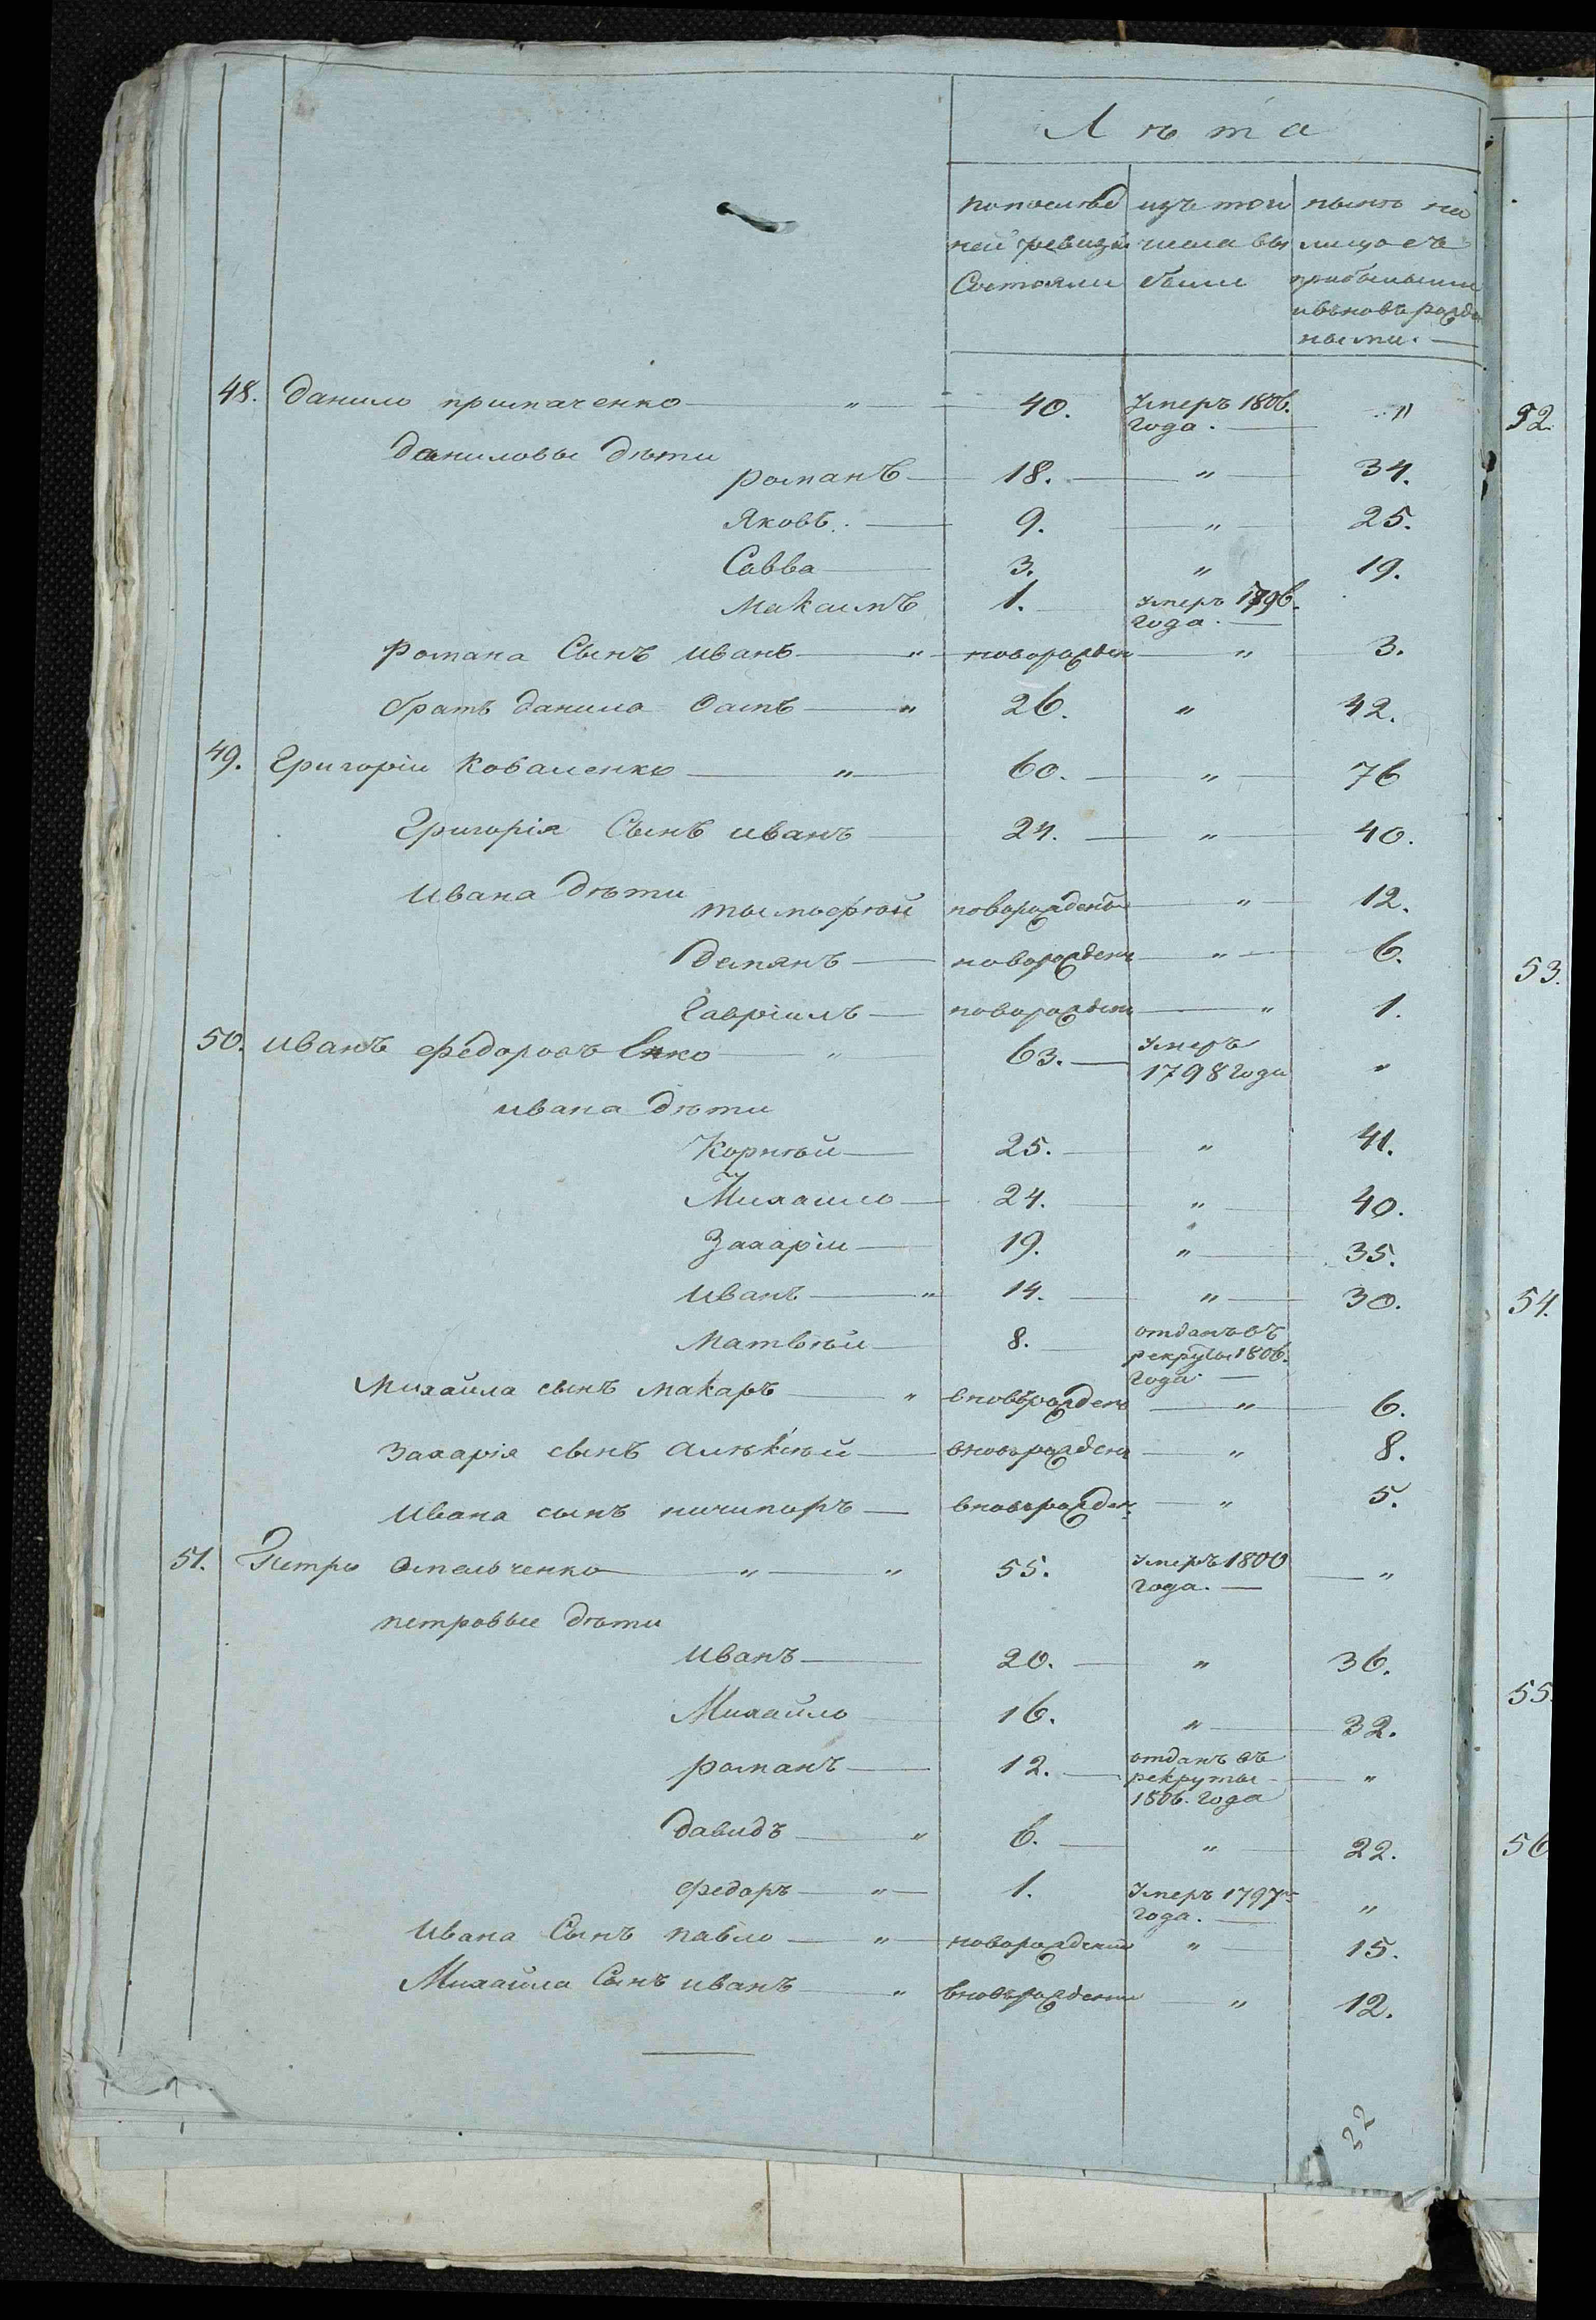 Лѣта
попослѣд изъ того нынѣ на
ней ревизіи числа вы лицо съ
Состояли были прибылыми
ивъновь рожде
ными.
48. Данило примаченко „ 40. Умеръ 1806. „
года.
52.
Даниловы дѣти
романъ 18. „ 34.
Яковъ. 9. „ 25.
Савва 3. „ 19.
Максимъ 1. Умеръ 1796.
года.
Романа Сынъ иванъ „ новорожден „ 3.
братъ данила „ 26. „ 42.
49. Григорій Коваленко „ 60. „ 76
Григорія Сынъ иванъ 24. „ 40.
Ивана дѣти
тымофѣй новорожденъ „ 12.
Демянъ новорожденъ „ 6.
53.
Гавріилъ новорожден „ 1.
50. Иванъ Федоровъ „ 63. Умеръ
1798 года „
ивана дѣти
Корнѣй 25. „ 41.
Михайло 24. „ 40.
Захарій 19. „ 35.
Иванъ „ 14. „ 30.
54.
Матвѣй 8. отданъ въ
рекруты 1806.
года
Михайла сынъ макаръ „ вновьрожденъ „ 6.
Захарія сынъ Алѣксѣй вновьрожденъ „ 8.
Ивана сынъ ничипоръ вновьрожден. „ 5.
51. Петро Омельченко „ „ 55. Умеръ 1800 „
года.
петровые дѣти
Иванъ 20. „ 36.
55.
Михайло 16. „ 32.
романъ 12. отданъ въ
рекруты „
1806. года
Давидъ „ 6. „ 22.
56
Федоръ „ 1. Умеръ 1797го „
года.
Ивана Сынъ павло „ новорожденій „ 15.
Михайла Сынъ иванъ „ вновьрожденій „ 12.
32